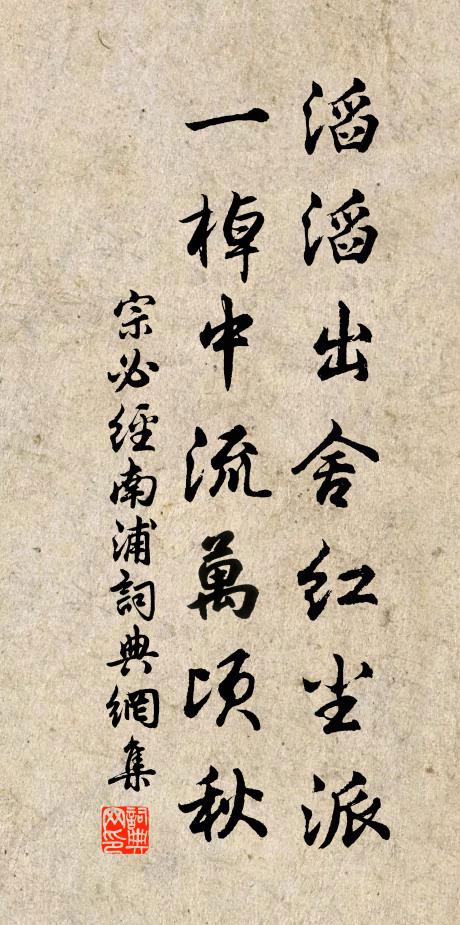 滔滔出舍红尘派
一棹中流萬頃秋
宗必經南浦詞典網集
詞典網印